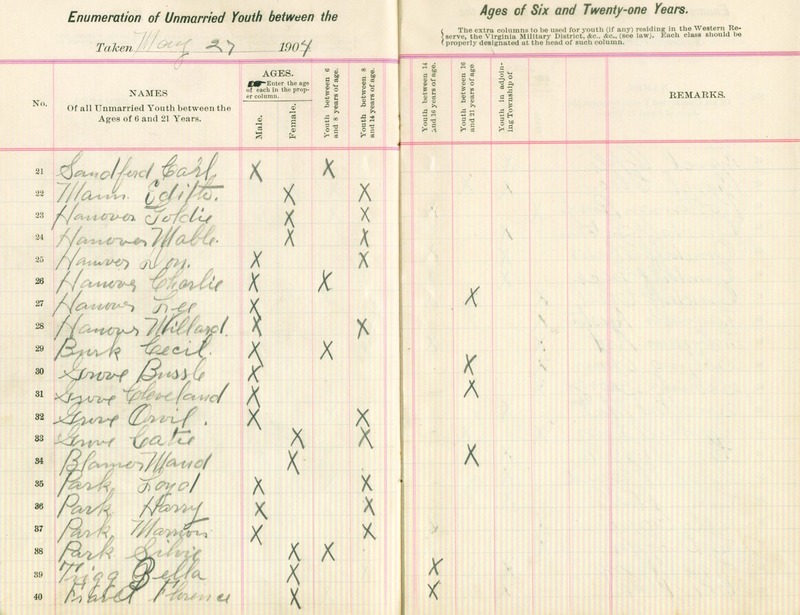 Enumeration of Unmarried Youth between the
Ages of Six and Twenty-one Years.
Taken May 27 1904
The extra columns to be used for youth (if any) residing in the Western Re-
serve, the Virginia Military District, &c., &c., (see law). Each class should be
properly designated at the head of such column.
No.
NAMES
Of all Unmarried Youth between the
Ages of 6 and 21 Years.
AGES.
Enter the age
of each in the prop-
er column.
Male.
Female.
Youth between 6
and 8 years of age.
Youth between 8
and 14 years of age.
Youth between 14
and 16 years of age.
Youth between 16
and 21 years of age.
Youth in adjoin-
ing Township of
REMARKS.
21 Sandford Carl X X
22 Mann X X
23 Hanover Goldie X X
24 Hanover Mable. X X
25 Hanover X X
26 Hanover Charlie X X
27 Hanover Lee X X
28 Hanover Willard. X X
29 Burk Cecil. X X
30 Grove Bussle X X
31 Grove Cleveland X X
32 Grove Orvil. X X
33 Grove Catie X X
34 Blamer Maud X X
35 Park, Loyd X X
36 Park Harry X X
37 Park Marrion X X
38 Park Silvie X X
39 Trigg Bella X X
40 Travel Florence X X